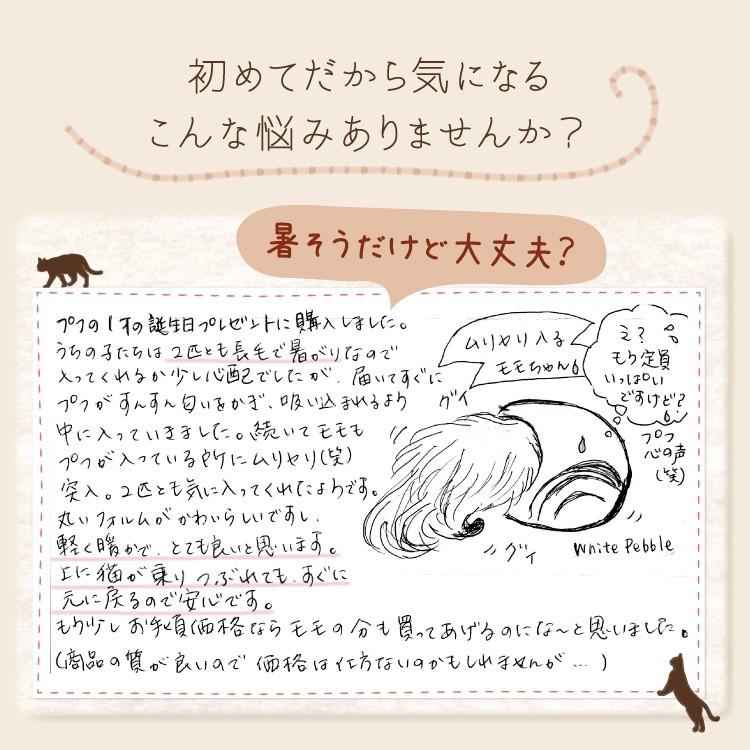 初めてだから気になる
こんな悩みありませんか？
暑そうだけど大丈夫？
プフの1才の誕生日プレゼントに購入しました。
うちの子たちは2匹とも長毛で暑がりなので
入ってくれるか少し心配でしたが、届いてすぐに
プフがすんすん匂いをかぎ、吸い込まれるよう
中に入っていきました。続いてモモも
プフが入っている所にムリヤリ(笑)
突入。2匹とも気に入ってくれたようです。
丸いフォルムがかわいらしいですし、
軽く暖かで、とても良いと思います。
上に猫が乗りつぶれても、すぐに
元に戻るので安心です。
もう少しお手頃価格ならモモの分も買ってあげるのにな〜と思いました。
(商品の質が良いので価格は仕方ないのかもしれませんが…)
ムリヤリ入る
モモちゃん
え？
もう定員
いっぱい
ですけど？
プフ
心の声
(笑)
グイ
グイ
White Pebble